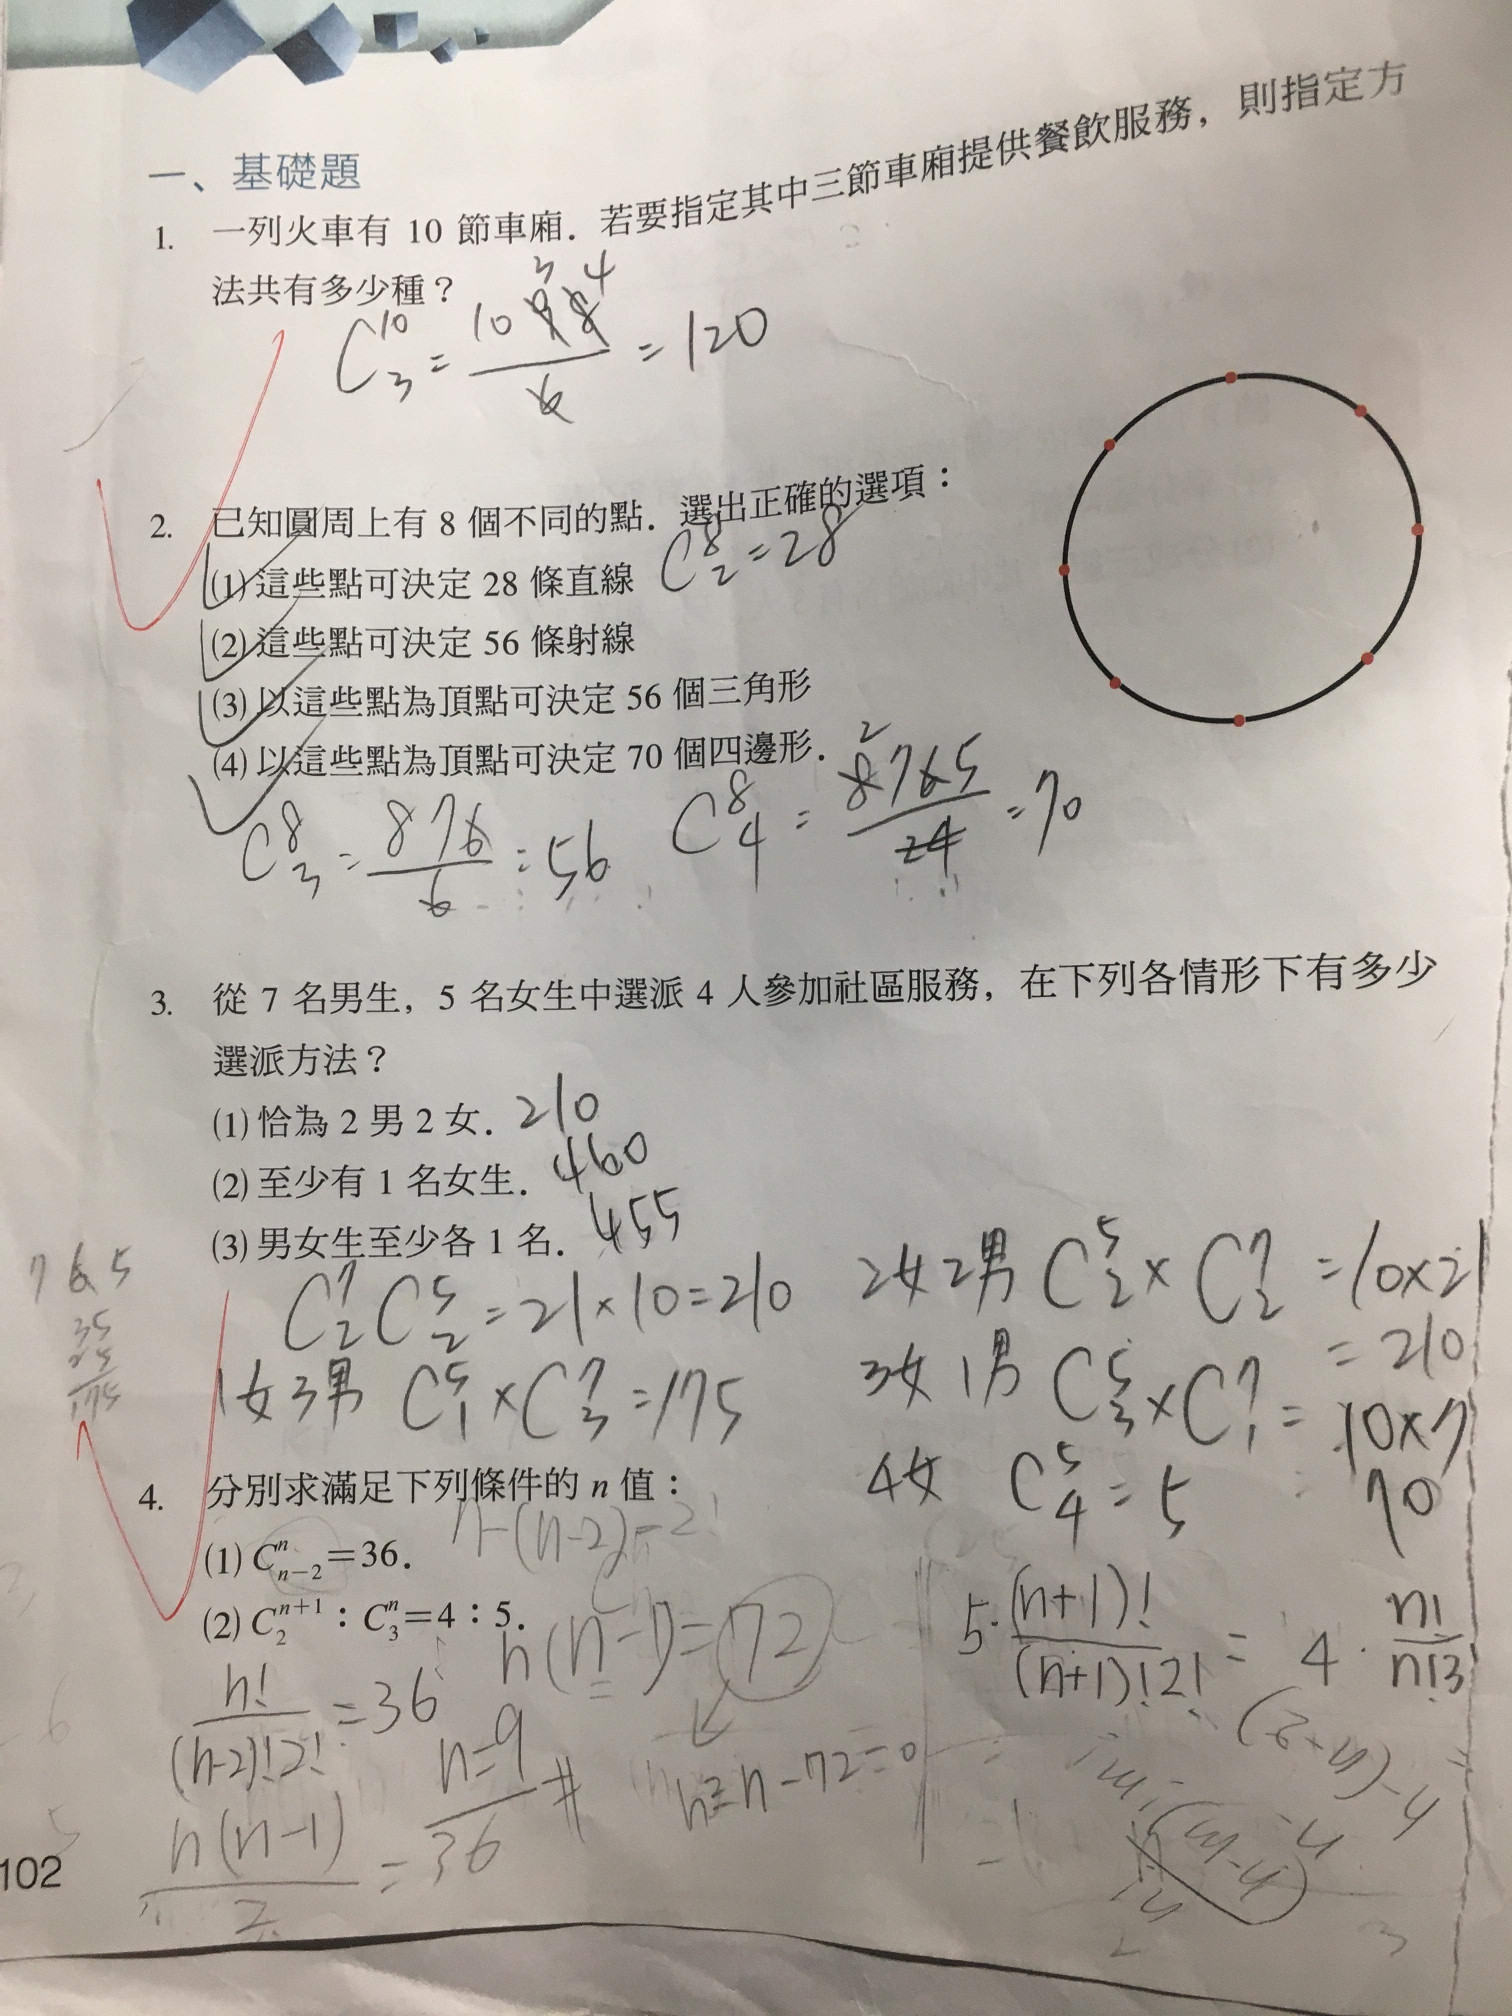 一、基礎題
1. 一列火車有 10 節車廂．若要指定其中三節車廂提供餐飲服務，則指定方
法共有多少種？
3 4
C^10_3 = 10 9 8 / 6 = 120
2. 已知圓周上有 8 個不同的點．選出正確的選項：
(1) 這些點可決定 28 條直線 C^8_2 = 28
(2) 這些點可決定 56 條射線
(3) 以這些點為頂點可決定 56 個三角形
(4) 以這些點為頂點可決定 70 個四邊形．
C^8_3 = 8 7 6 / 6 = 56
2
C^8_4 = 8 7 6 5 / 24 = 70
3. 從 7 名男生，5 名女生中選派 4 人參加社區服務，在下列各情形下有多少
選派方法？
(1) 恰為 2 男 2 女． 210
(2) 至少有 1 名女生． 460
(3) 男女生至少各 1 名． 455
7 6 5
35
175
C^7_2 C^5_2 = 21 × 10 = 210
1女3男 C^5_1 × C^7_3 = 175
2女2男 C^5_2 × C^7_2 = 10×21
= 210
3女1男 C^5_3 × C^7_1 = 10×7
= 70
4女 C^5_4 = 5
4. 分別求滿足下列條件的 n 值：
n-(n-2)=2
(1) C^n_{n-2}=36．
(2) C^{n+1}_2：C^n_3=4：5．
n! / (n-2)!2! = 36
n(n-1) = 72
n(n-1) / 2 = 36
n=9
36
n²-n-72=0
5· (n+1)! / (n+1)!2! = 4 · n! / n!3
102